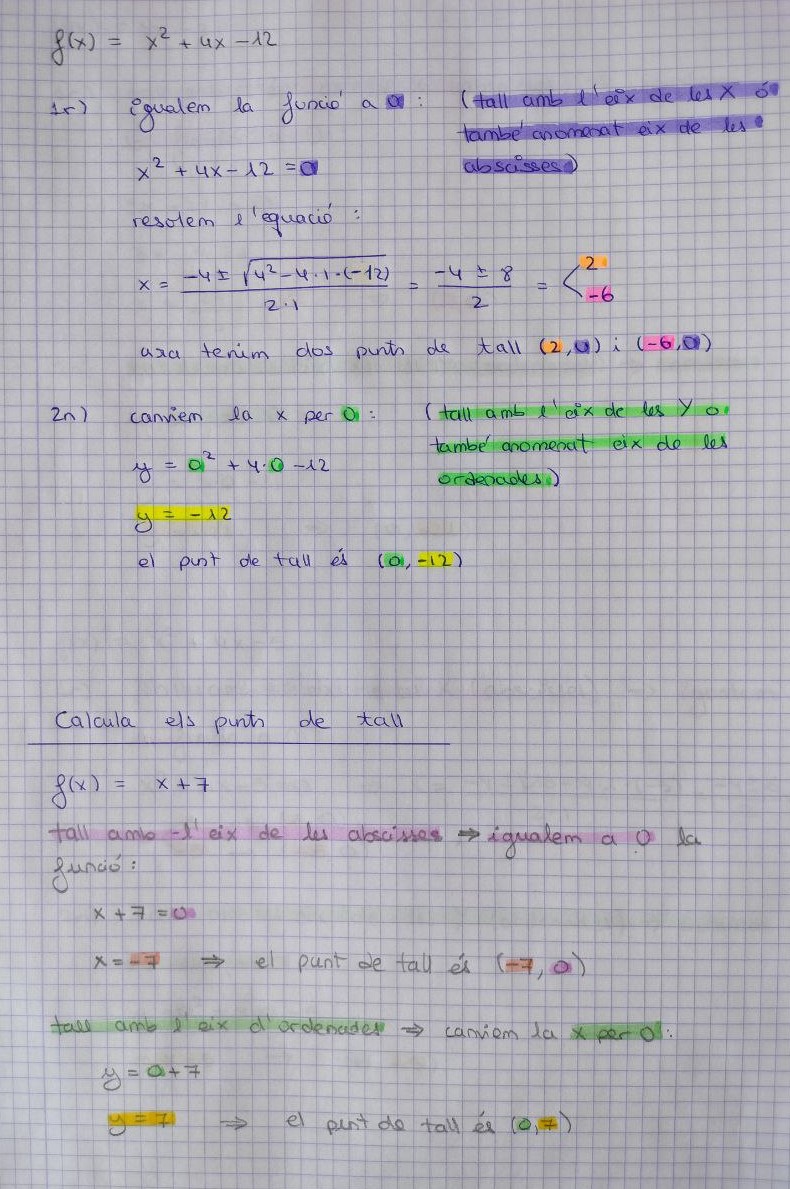 f(x) = x² + 4x - 12
1r) igualem la funció a 0 : (tall amb l'eix de les X ó
també anomenat eix de les
x² + 4x - 12 = 0 abscisses)
resolem l'equació :
x = \frac{-4 ± \sqrt{4² - 4·1·(-12)}}{2·1} = \frac{-4 ± 8}{2} = < 2 -6
ara tenim dos punts de tall (2,0) i (-6,0)
2n) canviem la x per 0 : (tall amb l'eix de les Y o
també anomenat eix de les
y = 0² + 4·0 - 12 ordenades)
y = -12
el punt de tall és (0, -12)
Calcula els punts de tall
f(x) = x + 7
tall amb l'eix de les abscisses ⇒ igualem a 0 la
funció :
x + 7 = 0
x = -7 ⇒ el punt de tall és (-7, 0)
tall amb l'eix d'ordenades ⇒ canviem la x per 0 :
y = 0 + 7
y = 7 ⇒ el punt de tall és (0, 7)